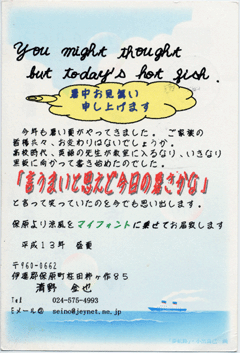 You might thought
but today's hot fish.
暑中お見舞い
申し上げます
今年も暑い夏がやってきました。 ご家族の
皆様共々、お変わりはないでしょうか。
高校時代、英語の先生が教室に入るなり、いきなり
黒板に向かって書き始めたのでした。
「言うまいと思えど今日の暑さかな」
と言って笑っていたのを今でも思い出します。
保原より涼風をマイフォントに乗せてお届致します
平成13年 盛夏
〒960-0662
伊達郡保原町柱田粋ヶ作85
清野 金也
Tel 024-575-4993
Eメール@ seino@jeynet.ne.jp